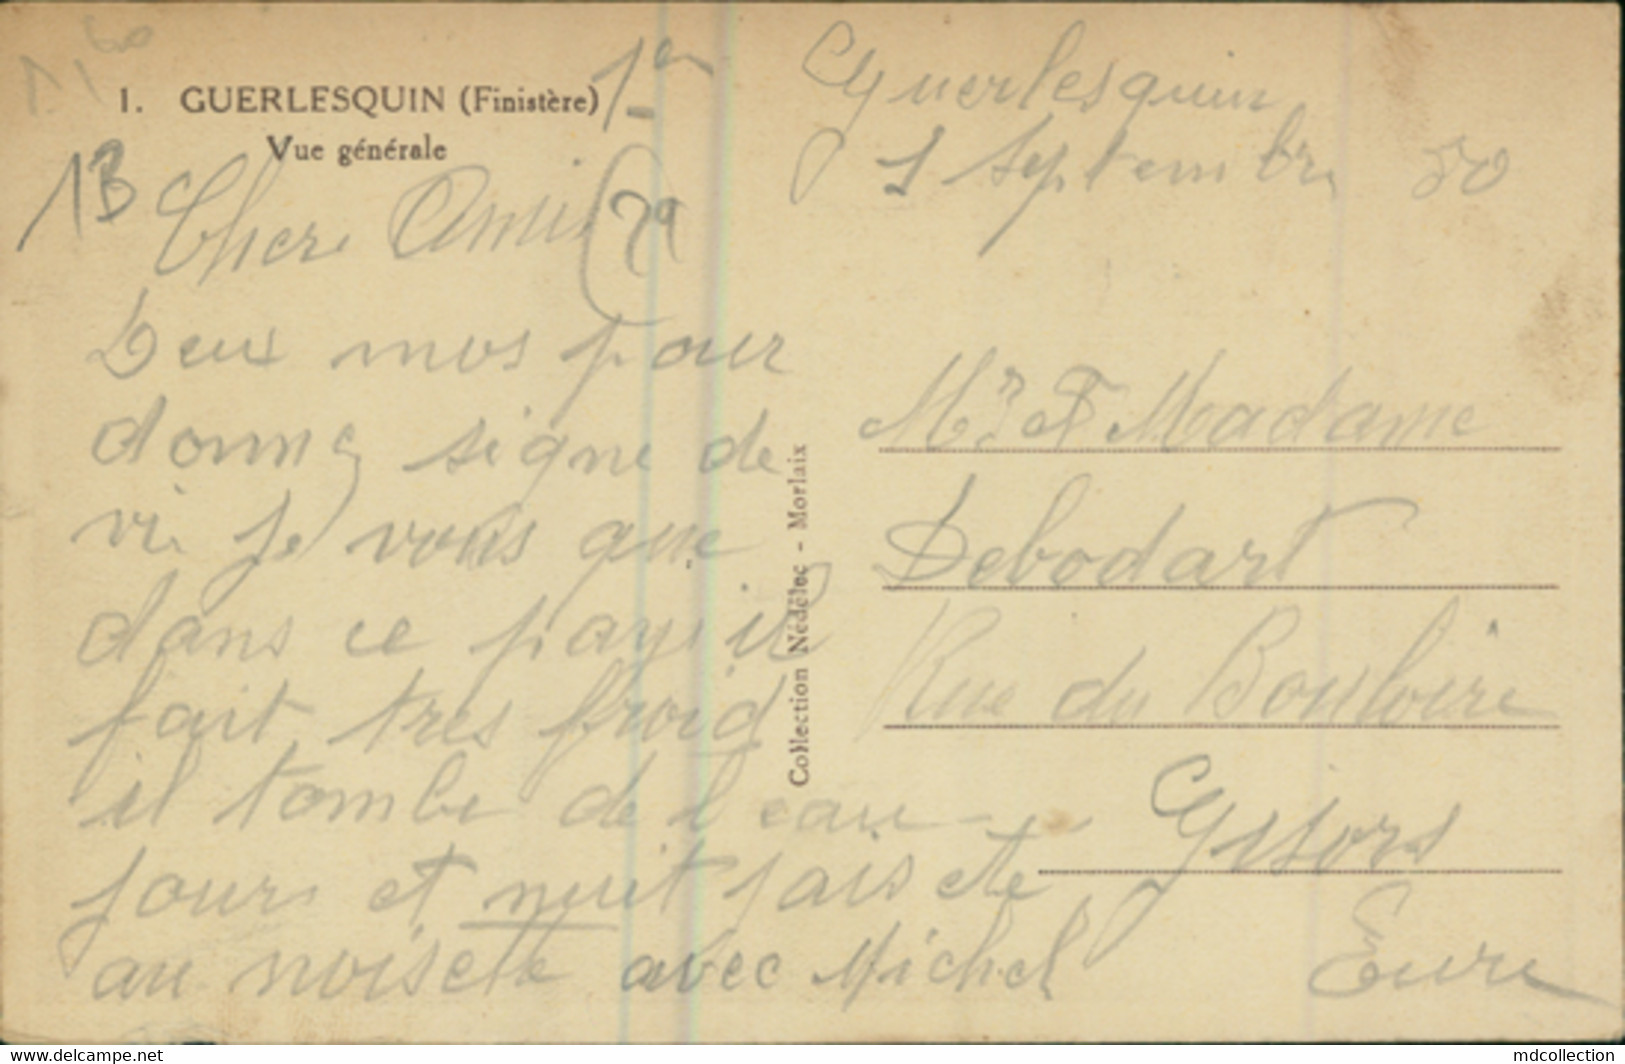 1. GUERLESQUIN (Finistère)
Vue générale
13
29
Chere Amis
Deux mos pour
donne signe de
vie je vous que
dans ce pays il
fait tres froid
il tombe de l eau
jour et nuit jais ete
au noisete avec Michel
Collection Nédélec - Morlaix
Guerlesquin
1 septembre 50
Mr et Madame
Debodart
Rue du Bouloire
Gisors
Eure
www.delcampe.net
mdcollection